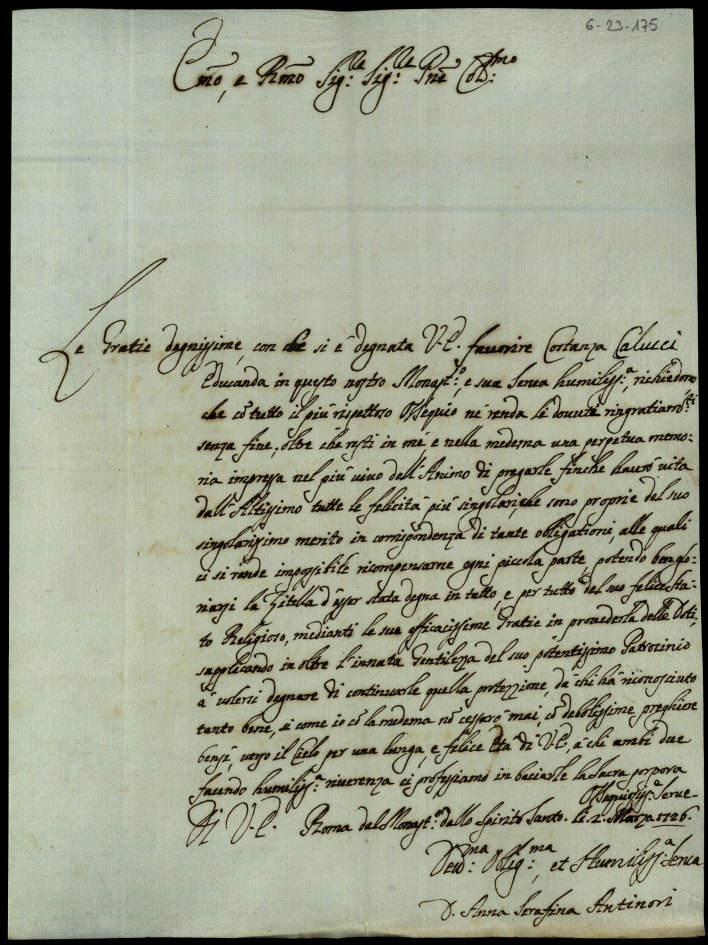 6-23-175
Em̃o, e Rm̃o Sig:re Sig:re Pr̃ne Col:mo
Le Gratie degnissime, con che si è degnata V. E. fauorire Costanza Calucci
Educanda in questo nostro Monast:o, e sua Serua humiliss:a, richiedono
che cõ tutto il più rispettoso Ossequio nè renda le douute ringratiam:ti
senza fine, oltre che resti in mè e nella medema una perpetua memo-
ria impressa nel più viuo dell'Animo di pregarle finche haurò vita
dall'Altissimo tutte le felicità più singolari, che sono proprie del suo
singolarissimo merito in corrispondenza di tante obligationi, alle quali
ci si rende impossibile ricompensarne ogni piccola parte, potendo ben glo-
riarsi la Zitella d'esser stata degna in tutto, e per tutto del suo felice sta-
to Religioso, medianti le sue efficacissime Gratie in prouederla delle Doti,
supplicando in oltre l'innata Gentilezza del suo potentissimo Patrocinio
à volersi degnare di continuarle quella protezzione, da chi hà riconosciuto
tanto bene, si come io cõ la medema nõ cessarò mai, cõ debolissime preghiere
bensì, verso il Cielo per una lunga, e felice Età di V. E, à chi ambi due
facendo humiliss:a riuerenza ci professiamo in baciarle la sacra porpora
Ossequiosiss:e Serue
Di V. E. Roma dal Monast:o dello Spirito Santo. li 2 Marzo 1726.
Deuo:ma Oblig:ma, et Humiliss:a Serua
D. Anna Serafina Antinori